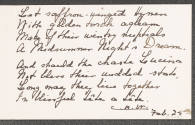 Let saffron-winged hymen
With golden torch agleam
Make of their winter nuptials
A Midsummer Night's Dream.
And should the chaste Lucina
Not bless their wedded state,
Long may they live together
In tête a tête
Feb. 25th